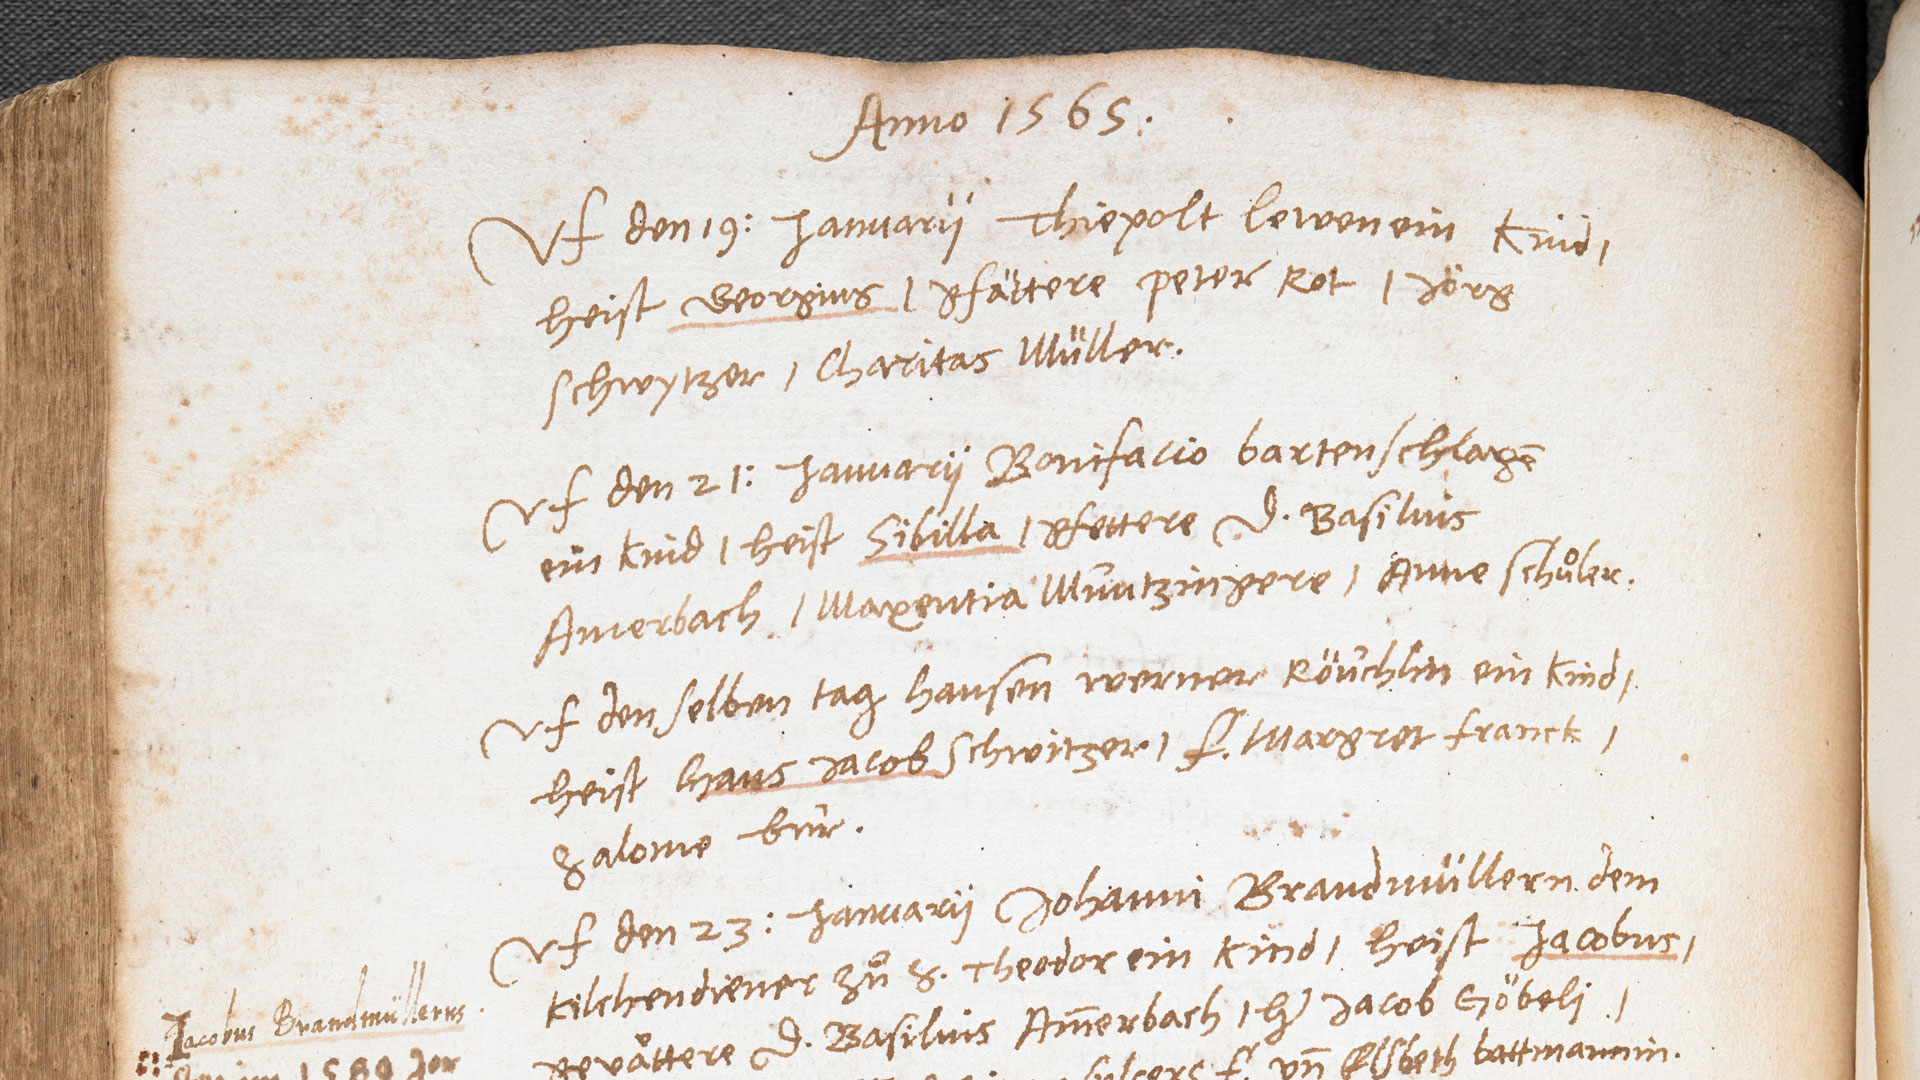 Anno 1565.
Vf den 19: Januarij Thiepolt lewen ein Kind,
heist Georgius / gfättere peter Rot / Jörg
schwytzer / Charitas Müller.
Vf den 21: Januarij Bonifacio bartenschlagē
ein Kind / heist Sibilla / gfettere D. Basilius
Amerbach / Maxentia Müntzingere / Anne schůler.
Vf den selben tag hansen werner Röüchlin ein Kind,
heist Hans Jacob schwitzer / f. Margret franck /
Salome bur.
Vf den 23: Januarij Johanni Brandmüllern dem
Kilchendiener zů S. Theodor ein Kind, heist Jacobus,
gevåttere D. Basilius Am̄erbach / H Jacob Göbeli /
f. vn̄ Elsbeth battmannin.
Jacobus Brandmüllerus
1589